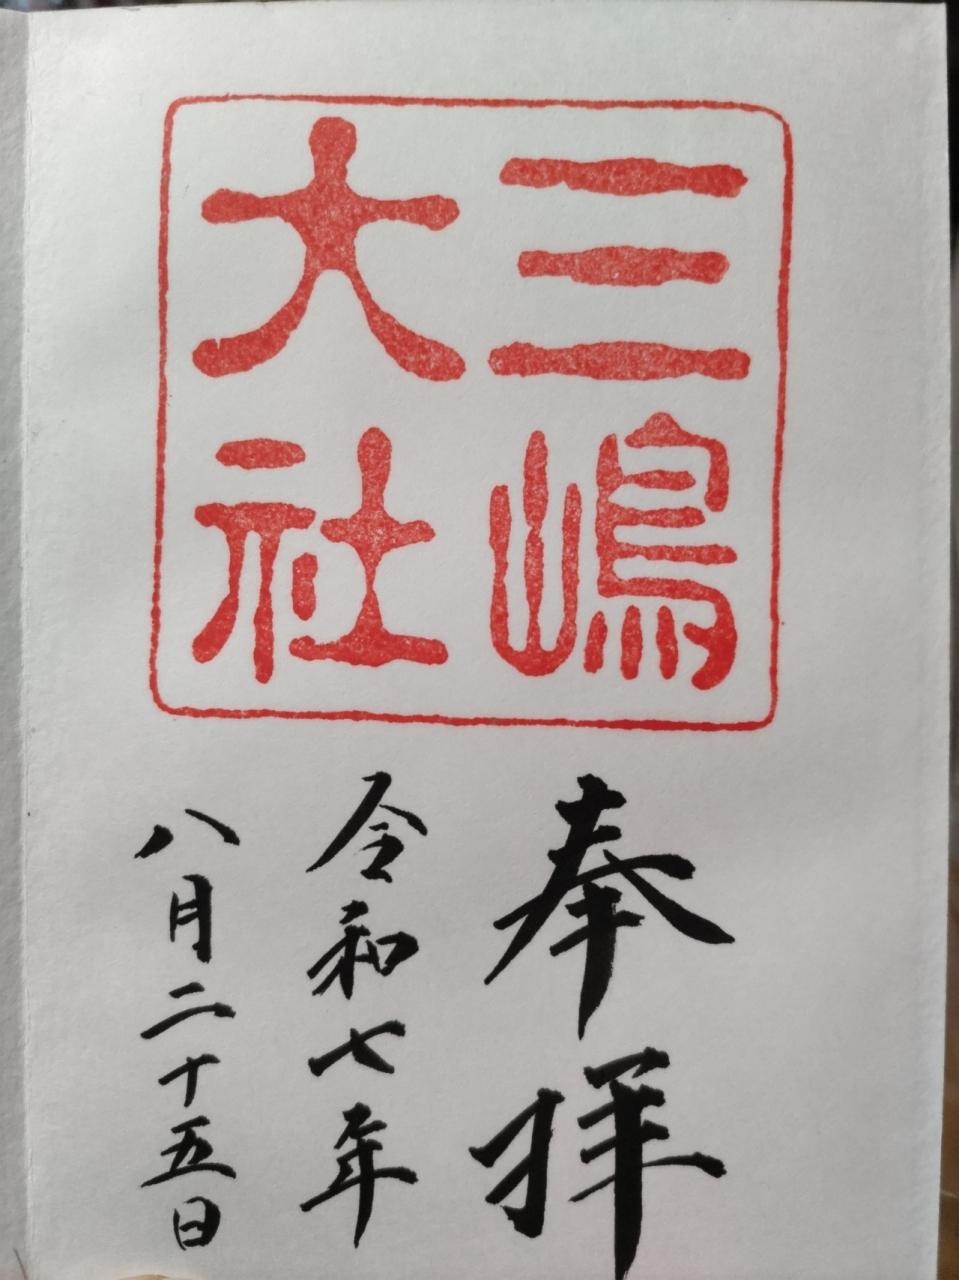 三嶋
大社
奉拝
令和七年
八月二十五日